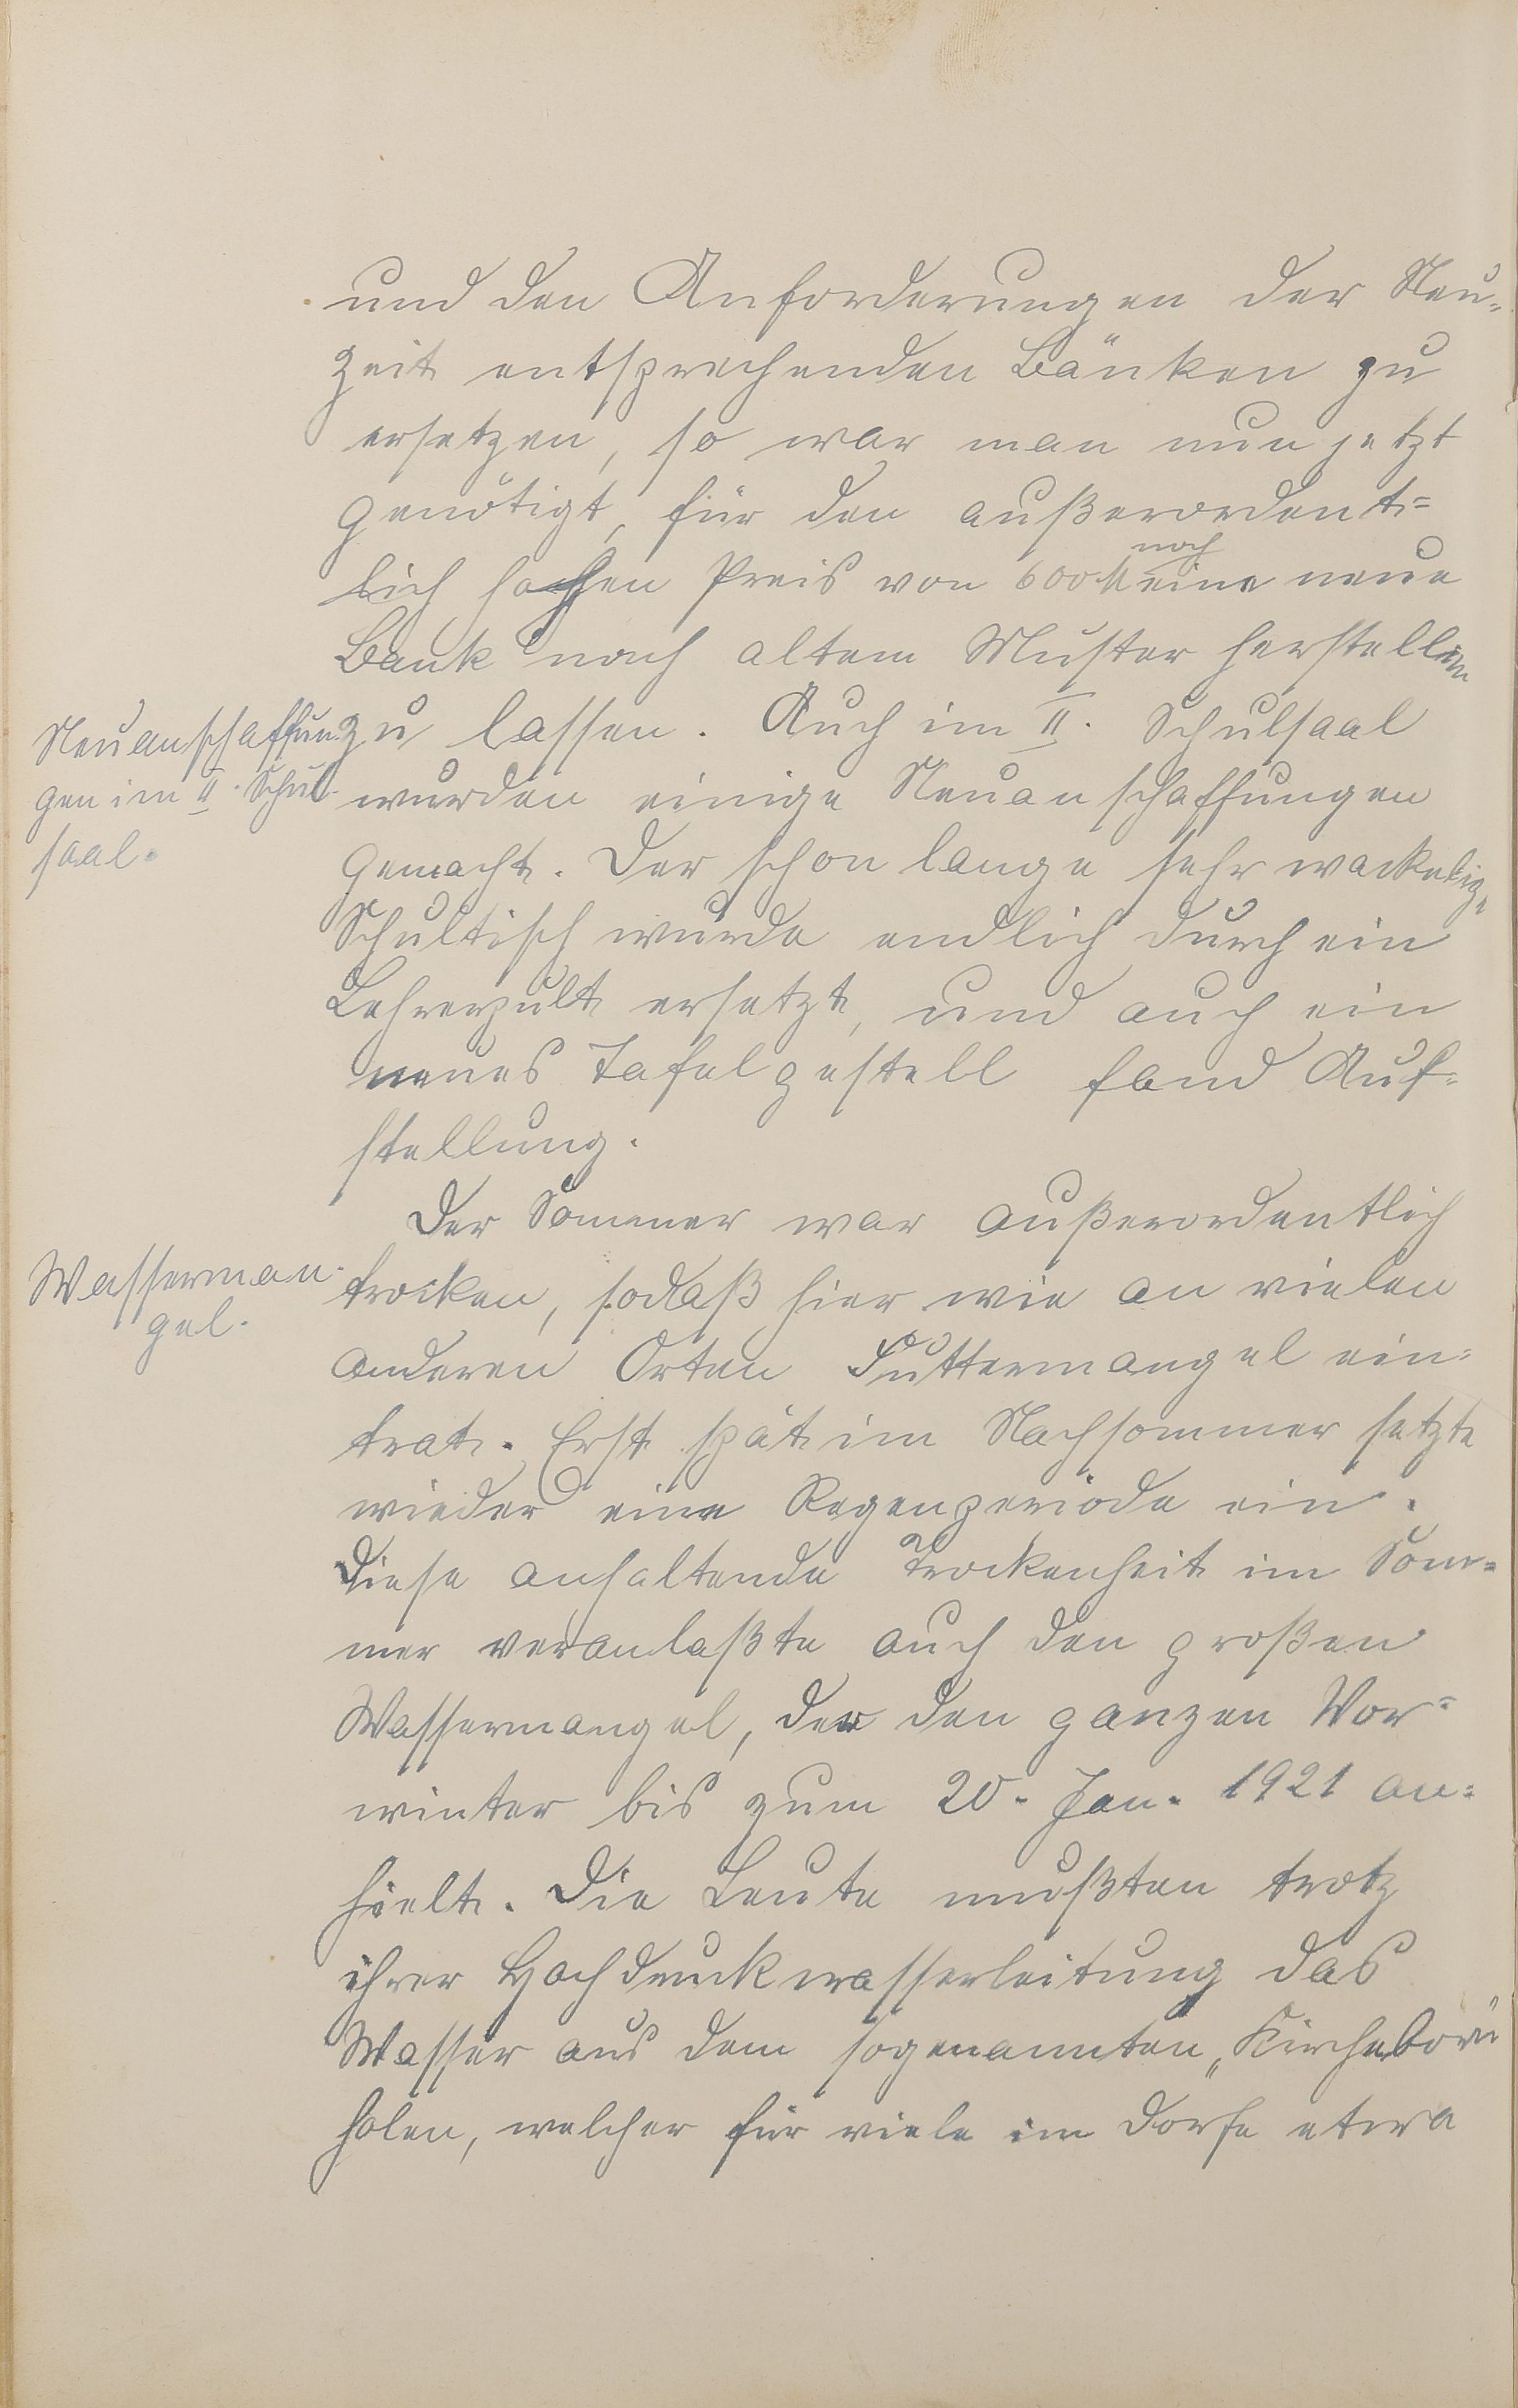 und den Anforderungen der Neu-
zeit entsprechenden Bänken zu
ersetzen, so war man nun jetzt
genötigt, für den außerordent=
noch
lich hohen Preis von 600 M eine neue
Bank nach altem Muster herstellen
Neuanschaffun-
gen im II. Schul-
saal.
zu lassen. Auch im II. Schulsaal
wurden einige Neuanschaffungen
gemacht. Der schon lange sehr wackelige
Schultisch wurde endlich durch ein
Lehrerpult ersetzt, und auch ein
neues Tafelgestell fand Auf=
stellung.
Der Sommer war außerordentlich
Wasserman-
gel.
trocken, sodaß hier wie an vielen
anderen Orten Futtermangel ein=
trat. Erst spät im Nachsommer setzte
wieder eine Regenperiode ein.
Diese anhaltende Trockenheit im Som=
mer veranlaßte auch den großen
Wassermangel, der den ganzen Vor=
winter bis zum 20. Jan. 1921 an=
hielt. Die Leute mußten trotz
ihrer Hochdruckwasserleitung das
Wasser aus dem sogenannten
holen, welcher für viele im Dorfe etwa